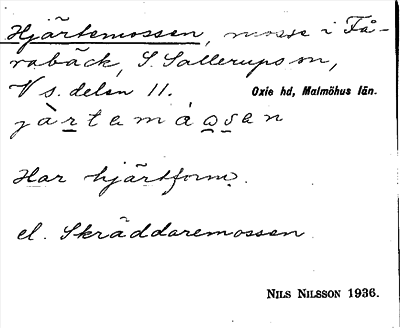 Hjärtemossen, mosse i Få-
rabäck, S. Sallerups sn,
V s. delen 11. Oxie hd, Malmöhus län.
jàrtemåo̲s̲en
Har hjärtform.
el. Skräddaremossen
NILS NILSSON 1936.